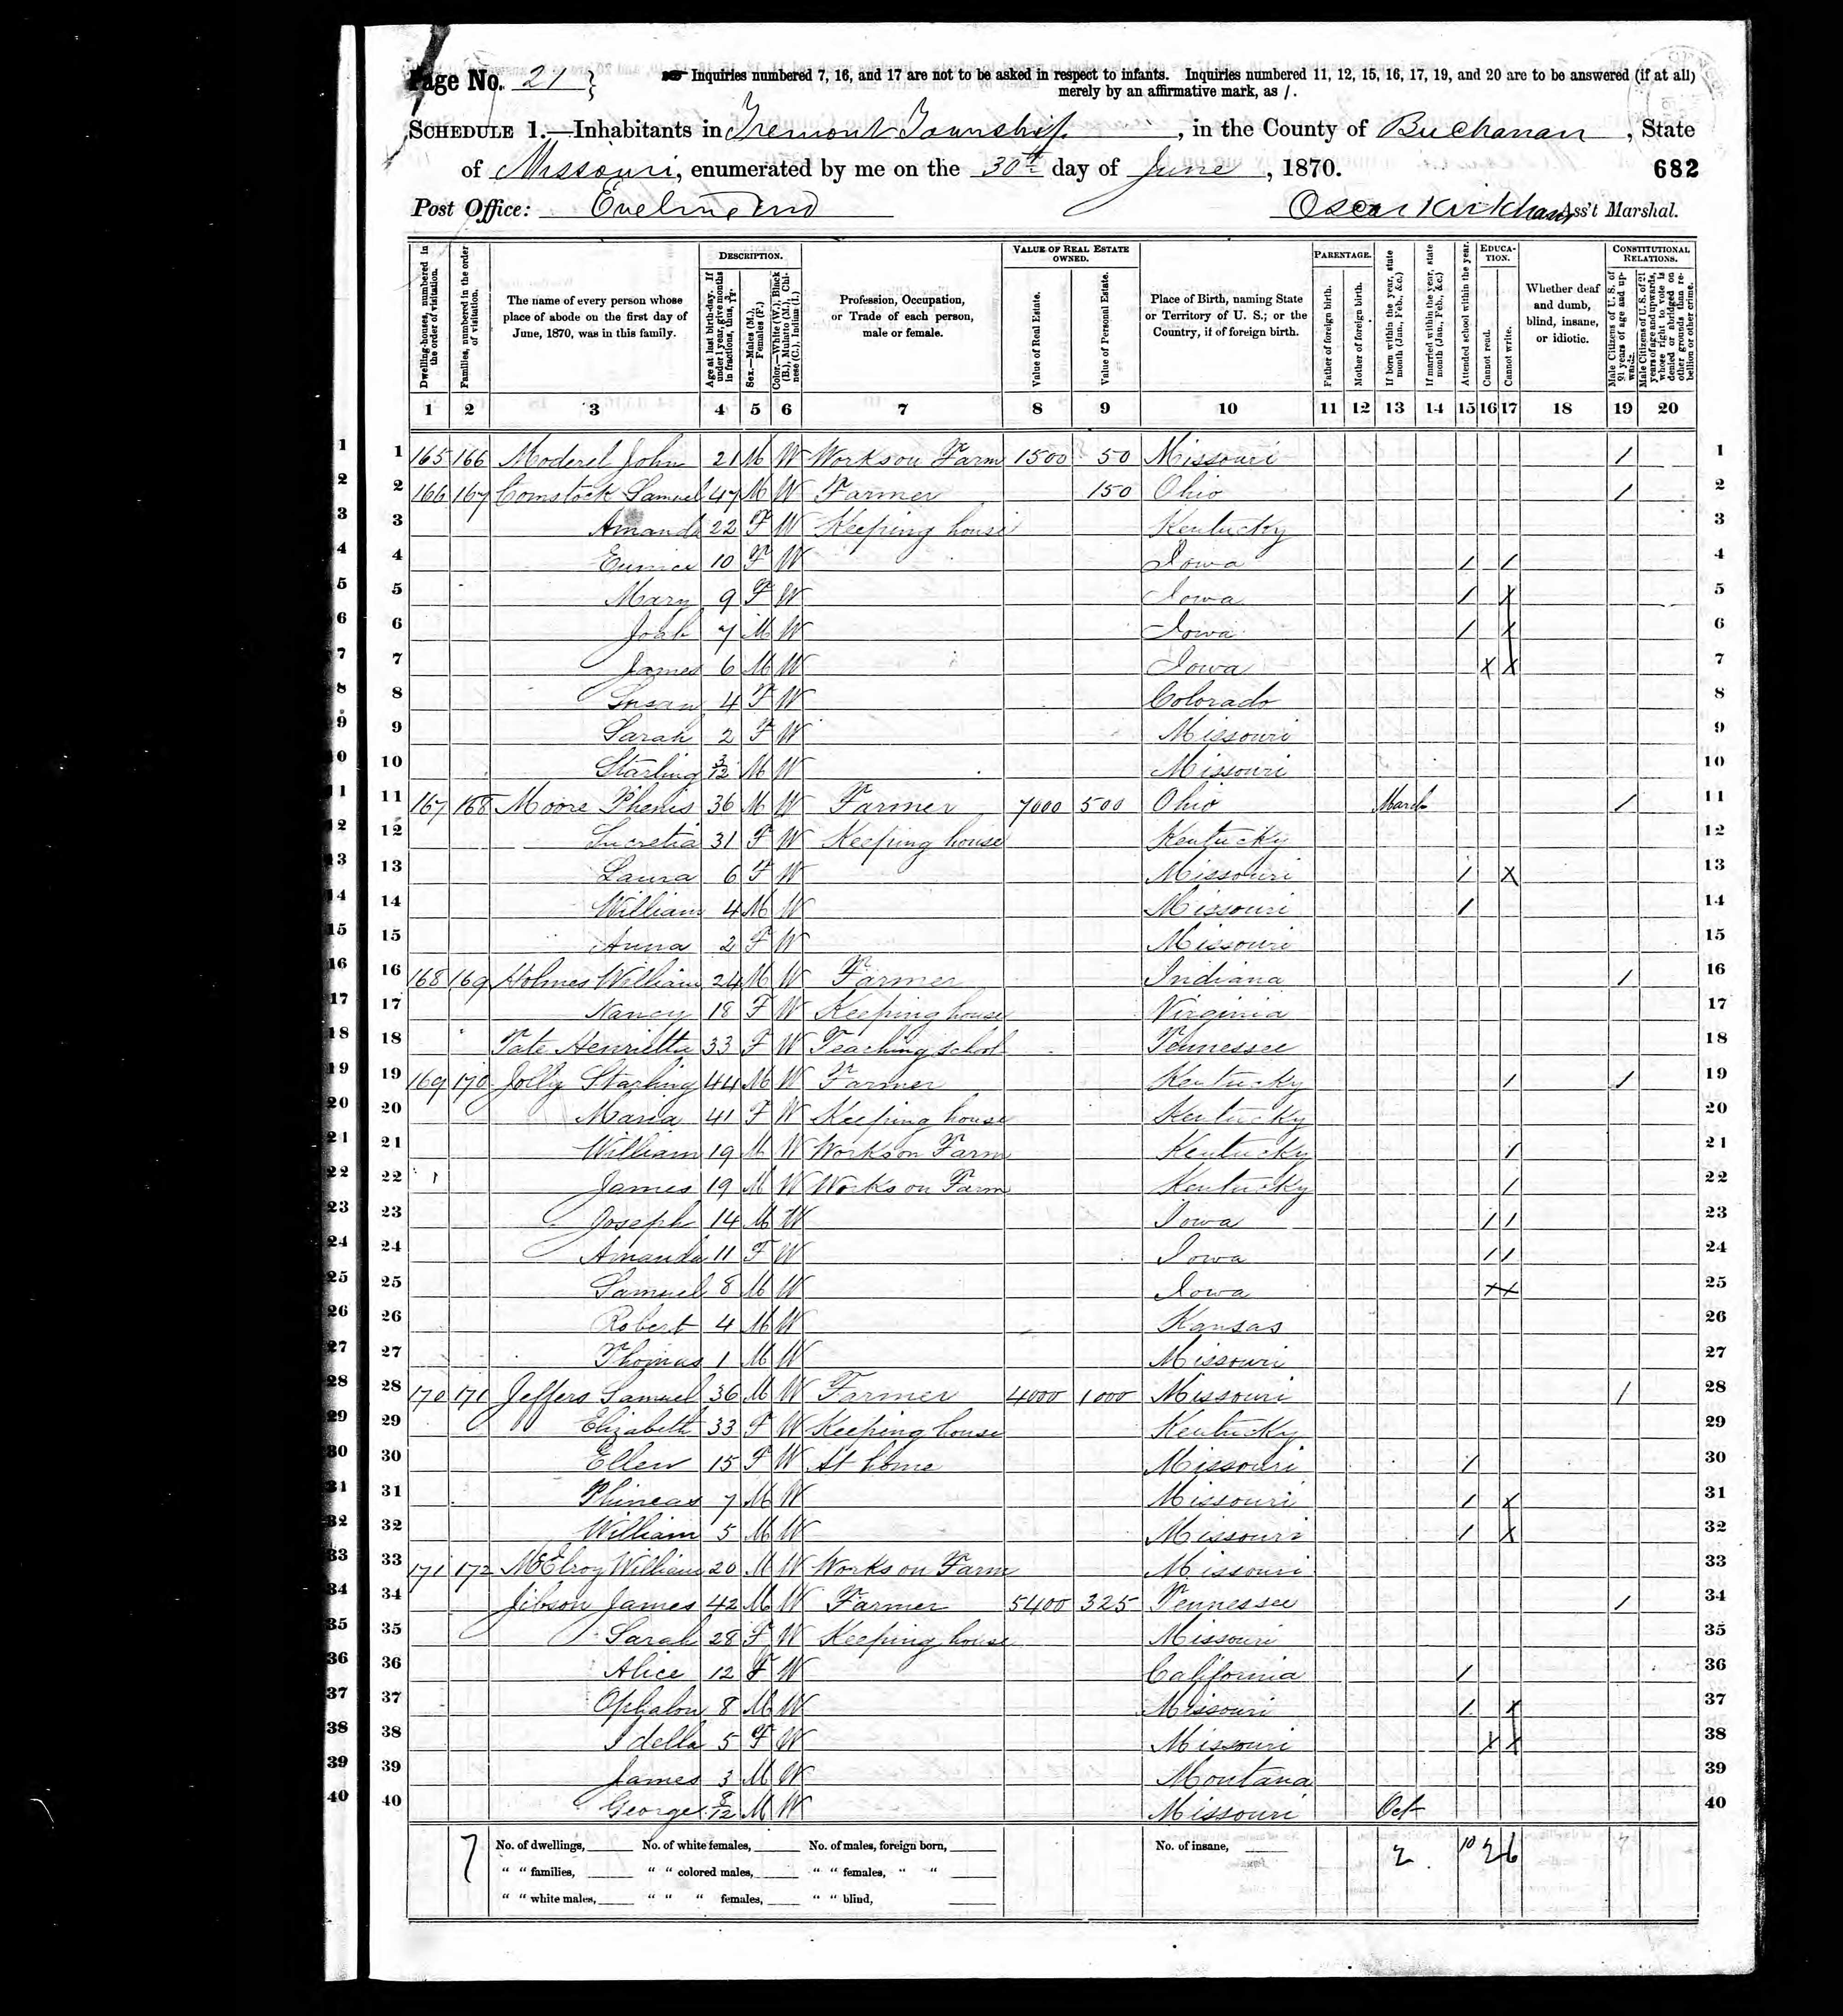 Page No. 21 } Inquiries numbered 7, 16, and 17 are not to be asked in respect to infants. Inquiries numbered 11, 12, 15, 16, 17, 19, and 20 are to be answered (if at all)
merely by an affirmative mark, as /.
SCHEDULE 1.—Inhabitants in Tremont Township, in the County of Buchanan, State
of Missouri, enumerated by me on the 30th day of June, 1870. 682
Post Office: Oscar Kirkham Ass't Marshal.
Dwelling-houses, numbered in the order of visitation.
Families, numbered in the order of visitation.
The name of every person whose place of abode on the first day of June, 1870, was in this family.
DESCRIPTION.
Age at last birth-day. If under 1 year, give months in fractions, thus, 3/12.
Sex.—Males (M.), Females (F.)
Color.—White (W.), Black (B.), Mulatto (M.), Chinese (C.), Indian (I.)
Profession, Occupation, or Trade of each person, male or female.
VALUE OF REAL ESTATE OWNED.
Value of Real Estate.
Value of Personal Estate.
Place of Birth, naming State or Territory of U. S.; or the Country, if of foreign birth.
PARENTAGE.
Father of foreign birth.
Mother of foreign birth.
If born within the year, state month (Jan., Feb., &c.)
If married within the year, state month (Jan., Feb., &c.)
Attended school within the year.
EDUCATION.
Cannot read.
Cannot write.
Whether deaf and dumb, blind, insane, or idiotic.
CONSTITUTIONAL RELATIONS.
Male Citizens of U. S. of 21 years of age and upwards.
Male Citizens of U. S. of 21 years of age and upwards, whose right to vote is denied or abridged on other grounds than rebellion or other crime.
1 2 3 4 5 6 7 8 9 10 11 12 13 14 15 16 17 18 19 20
1 1 165 166 Moderel John 21 M W Works on Farm 1500 50 Missouri / 1
2 2 166 167 Comstock Samuel 47 M W Farmer 150 Ohio / 2
3 3 Amanda 22 F W Keeping house Kentucky 3
4 4 Eunice 10 F W Iowa / / 4
5 5 Mary 9 F W Iowa / X 5
6 6 Joab 7 M W Iowa / X 6
7 7 James 6 M W Iowa X X 7
8 8 Susan 4 F W Colorado 8
9 9 Sarah 2 F W Missouri 9
10 10 Starling 3/12 M W Missouri 10
11 11 167 168 Moore Phenis 36 M W Farmer 7000 500 Ohio March / 11
12 12 Lucretia 31 F W Keeping house Kentucky 12
13 13 Laura 6 F W Missouri / X 13
14 14 William 4 M W Missouri / 14
15 15 Anna 2 F W Missouri 15
16 16 168 169 Holmes William 24 M W Farmer Indiana / 16
17 17 Nancy 18 F W Keeping house Virginia 17
18 18 Tate Henrietta 33 F W Teaching school Tennessee 18
19 19 169 170 Jolly Starling 44 M W Farmer Kentucky / / 19
20 20 Maria 41 F W Keeping house Kentucky 20
21 21 William 19 M W Works on Farm Kentucky / 21
22 22 James 19 M W Works on Farm Kentucky / 22
23 23 Joseph 14 M W Iowa / / 23
24 24 Amanda 11 F W Iowa / / 24
25 25 Samuel 8 M W Iowa X X 25
26 26 Robert 4 M W Kansas 26
27 27 Thomas 1 M W Missouri 27
28 28 170 171 Jeffers Samuel 36 M W Farmer 4000 1000 Missouri / 28
29 29 Elizabeth 33 F W Keeping house Kentucky 29
30 30 Ellen 15 F W At home Missouri / 30
31 31 Phineas 7 M W Missouri / X 31
32 32 William 5 M W Missouri / X 32
33 33 171 172 McElroy William 20 M W Works on Farm Missouri 33
34 34 Jibson James 42 M W Farmer 5400 325 Tennessee / 34
35 35 Sarah 28 F W Keeping house Missouri 35
36 36 Alice 12 F W California / 36
37 37 Ophalon 8 M W Missouri / X 37
38 38 Idella 5 F W Missouri X X 38
39 39 James 3 M W Montana 39
40 40 George 8/12 M W Missouri Oct 40
7 No. of dwellings, No. of white females, No. of males, foreign born, No. of insane, 2 10 2 6 7
" " families, " " colored males, " " females, " "
" " white males, " " " females, " " blind,